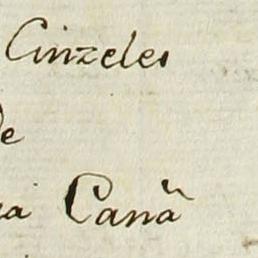 Cinzeles
de
a Canã